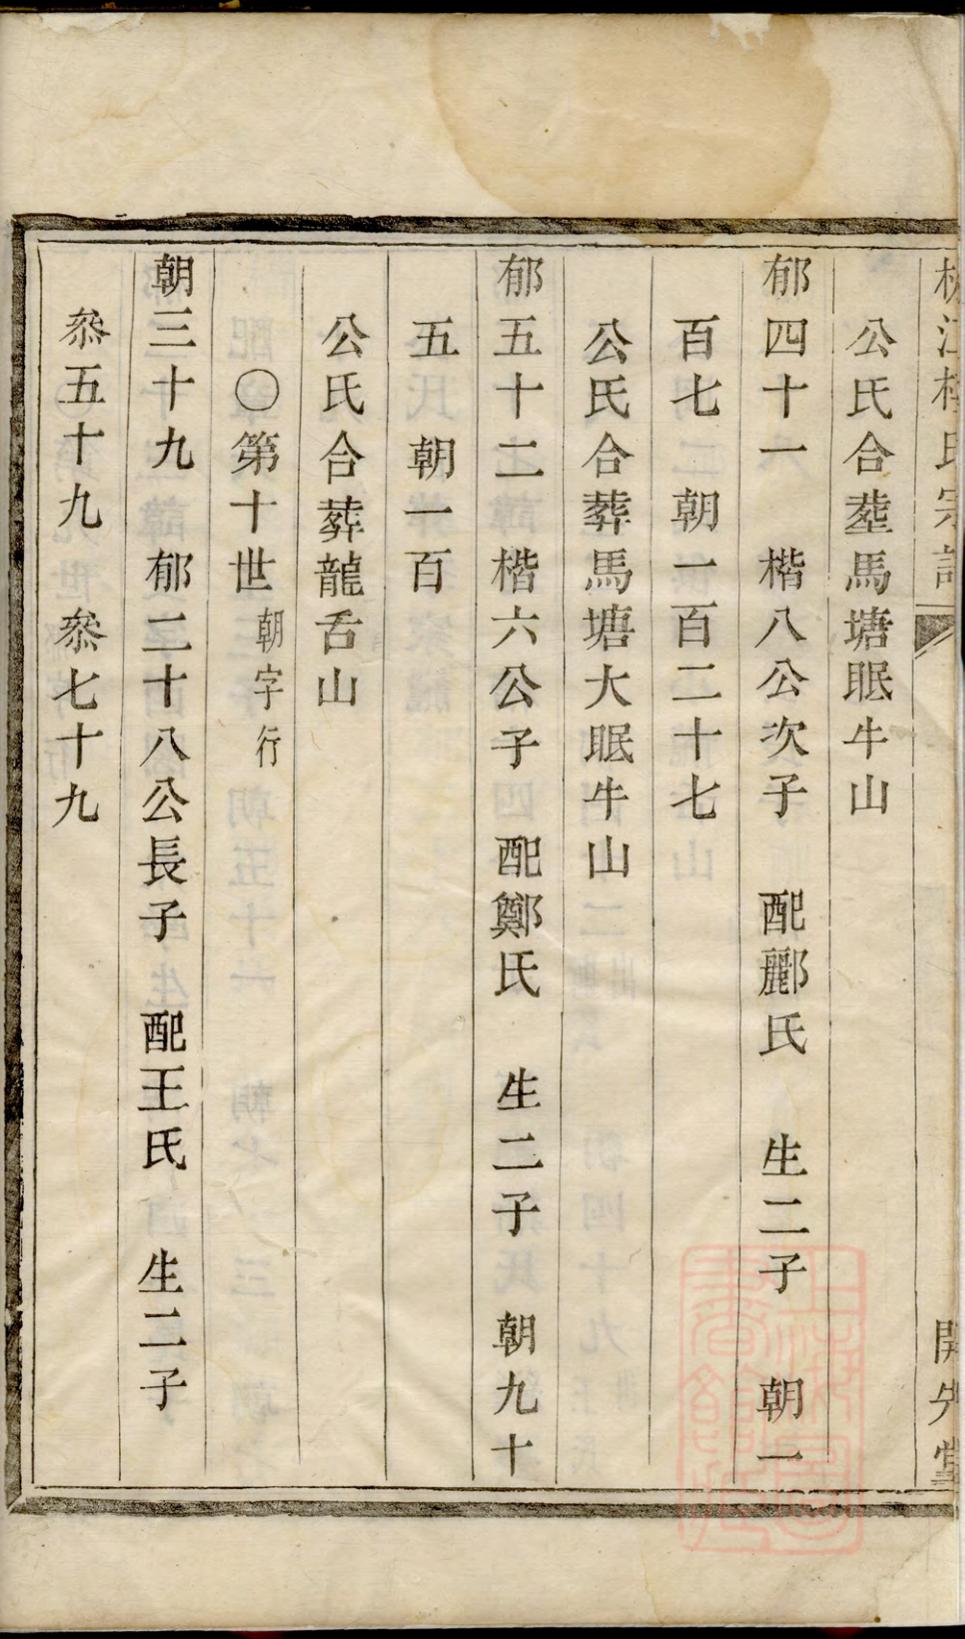 江 氏宗 開先堂
公氏合塟馬塘眠牛山
郁四十一 楷八公次子 配酈氏 生二子 朝一
百七 朝一百二十七
公氏合葬馬塘大眠牛山
郁五十二 楷六公子 配鄭氏 生二子 朝九十
五 朝一百
公氏合葬龍舌山
○第十世 朝字行
朝三十九 郁二十八公長子 配王氏 生二子
叅五十九 叅七十九